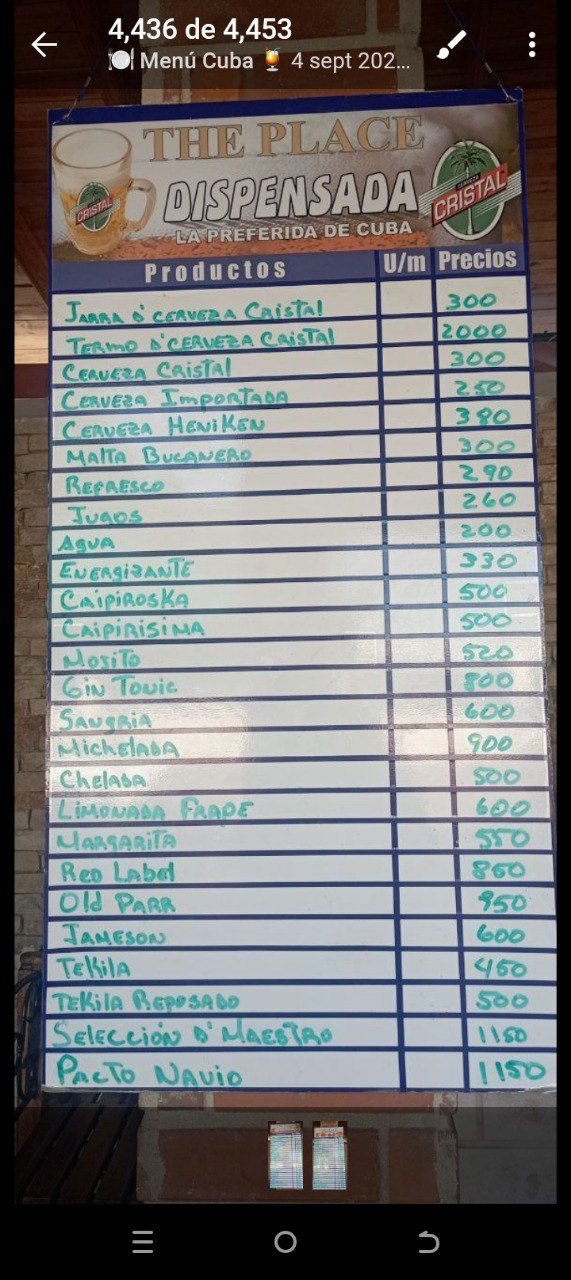 4,436 de 4,453
🍽 Menú Cuba 🍹 4 sept 202...
THE PLACE
DISPENSADA
LA PREFERIDA DE CUBA
CRISTAL
CERVEZA CRISTAL
Productos U/m Precios
JARRA D' CERVEZA CRISTAL 300
TERMO D' CERVEZA CRISTAL 2000
CERVEZA CRISTAL 300
CERVEZA IMPORTADA 250
CERVEZA HENIKEN 380
MALTA BUCANERO 300
REFRESCO 290
JUGOS 260
AGUA 200
ENERGIZANTE 330
CAIPIROSKA 500
CAIPIRISIMA 500
MOJITO 520
Gin Tonic 800
SANGRIA 600
MICHELADA 900
CHELADA 500
LIMONADA FRAPE 600
MARGARITA 550
Red Label 850
Old PARR 950
JAMESON 600
TeKila 450
TEKila REPOSADO 500
SELECCIÓN D' MAESTRO 1150
PACTO NAVIO 1150